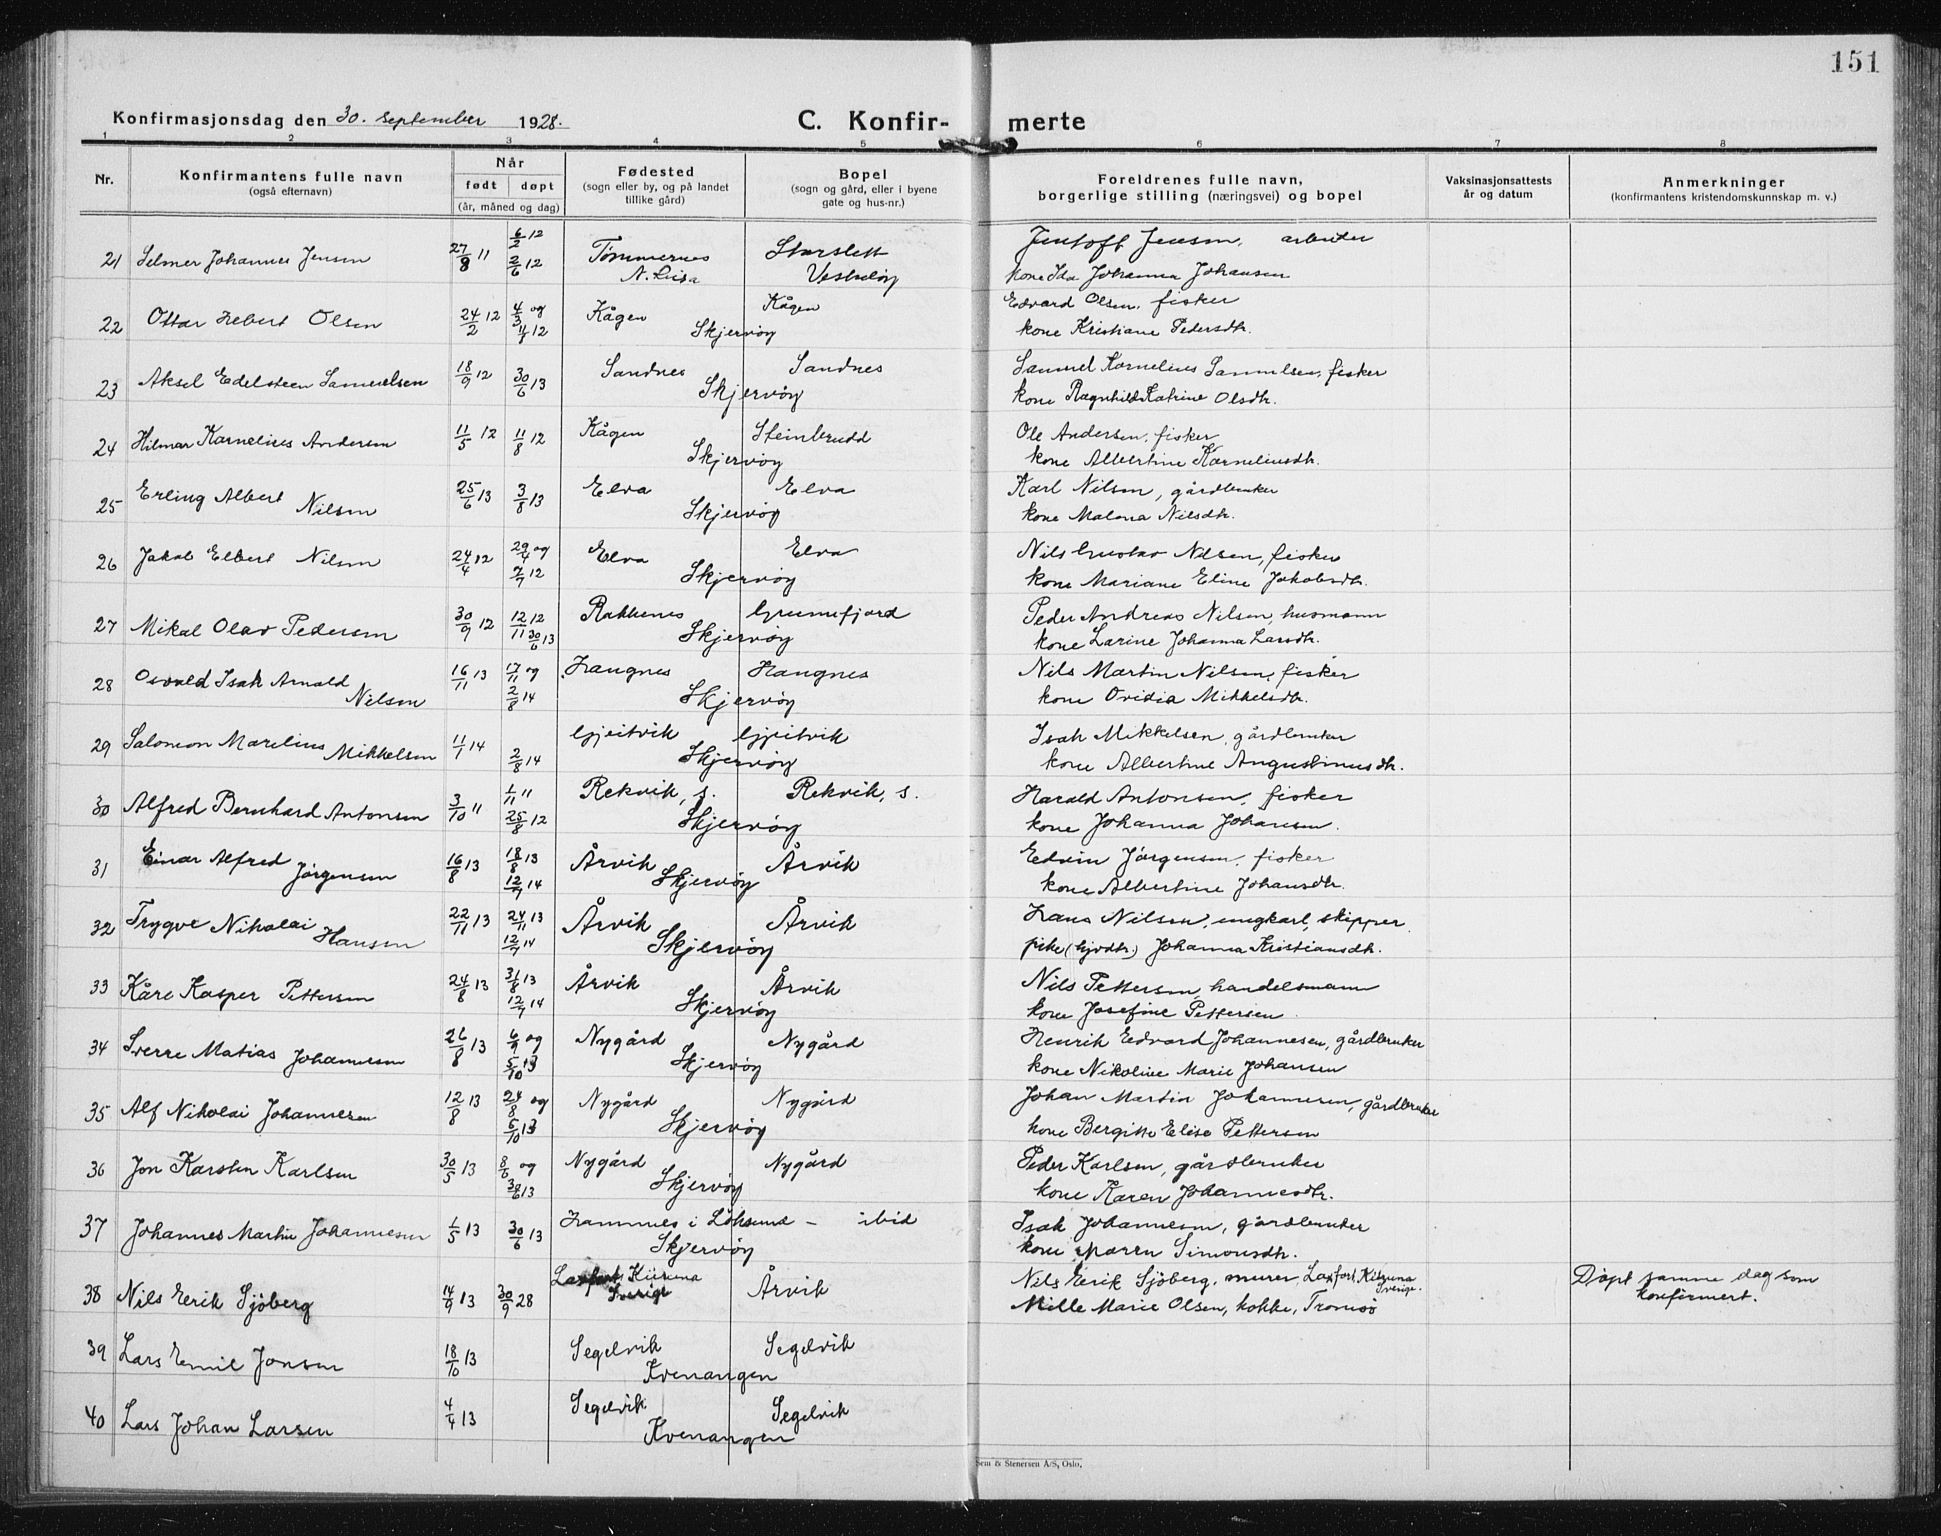 151
Konfirmasjonsdag den 30. september 1928.
C. Konfirmerte
1 2 3 4 5 6 7 8
Nr.
Konfirmantens fulle navn
(også efternavn)
Når
født døpt
(år, måned og dag)
Fødested
(sogn eller by, og på landet
tillike gård)
Bopel
(sogn og gård, eller i byene
gate og hus-nr.)
Foreldrenes fulle navn,
borgerlige stilling (næringsvei) og bopel
Vaksinasjonsattests
år og datum
Anmerkninger
(konfirmantens kristendomskunnskap m. v.)
21 Selmer Johannes Jensen 27/8 11 6/2 12 2/6 12 Tømmernes Storslett Jentoft Jensen, arbeider
Vestnløy kone Ida Johanna Johansen
22 Ottar Hebert Olsen 24/2 12 4/3 og 12 Kågen Kågen Edvard Olsen, fisker
Skjervøy kone Kristiane Pedersdtr.
23 Aksel Edelsteen Samuelsen 18/9 12 30/6 13 Sandnes Sandnes Samuel Kornelius Samuelsen, fisker
Skjervøy kone Ragnhild Katrine Olsdtr.
24 Hilmar Karnelius Andersen 11/5 12 11/8 12 Kågen Steinbrudd Ole Andersen, fisker
Skjervøy kone Albertine Karneliusdtr.
25 Erling Albert Nilsen 25/6 13 3/8 13 Elva Elva Karl Nilsen, gårdbruker
Skjervøy kone Malena Nilsdtr.
26 Jakob Elbert Nilsen 24/4 12 29/4 og 7/7 12 Elva Elva Nils Gustav Nilsen, fisker
Skjervøy kone Mariane Eline Jakobsdtr.
27 Mikal Olav Pedersen 30/9 12 12/11 12 30/6 13 Rakkenes Grunnfjord Peder Andreas Nilsen, husmann
Skjervøy kone Larine Johanna Larsdtr.
28 Osvald Isak Arnald Nilsen 16/11 13 17/11 og 2/8 14 Haugnes Haugnes Nils Martin Nilsen, fisker
Skjervøy kone Ovidia Mikkelsdtr.
29 Salomon Marelius Mikkelsen 11/1 14 2/8 14 Gjeitvik Gjeitvik Isak Mikkelsen, gårdbruker
Skjervøy kone Albertine Angustinusdtr.
30 Alfred Bernhard Antonsen 3/10 11 1/11 11 25/8 12 Rekvik, s. Rekvik, s. Harald Antonsen, fisker
Skjervøy kone Johanna Johansen.
31 Einar Alfred Jørgensen 16/8 13 18/8 13 12/7 14 Årvik Årvik Edvin Jørgensen, fisker
Skjervøy kone Albertine Johansdtr.
32 Trygve Nikolai Hansen 22/11 13 24/11 13 12/7 14 Årvik Årvik Hans Nilsen, ungkarl, skipper.
Skjervøy pike (Gjvdtr.) Johanna Kristiansdtr.
33 Kåre Kasper Pettersen 24/8 13 31/8 13 12/7 14 Årvik Årvik Nils Pettersen, handelsmann
Skjervøy kone Josefine Pettersen
34 Sverre Matias Johannesen 26/8 13 6/9 og 5/10 13 Nygård Nygård Henrik Edvard Johannesen, gårdbruker
Skjervøy kone Nikoline Marie Johansen
35 Alf Nikolai Johannesen 12/8 13 24/8 og 5/10 13 Nygård Nygård Johan Martin Johannesen, gårdbruker
Skjervøy kone Bergitte Elise Pettersen
36 Jon Karsten Karlsen 30/5 13 8/6 og 30/6 13 Nygård Nygård Peder Karlsen, gårdbruker
Skjervøy kone Karen Johannesdtr.
37 Johannes Martin Johannesen 1/5 13 30/6 13 Hamnes i Løksund – ibid Isak Johannesen, gårdbruker
Skjervøy kone Maren Simonsdtr.
38 Nils Eerik Sjöberg 14/9 13 30/9 28 Laxfort, Kiiruna Sverige Årvik Nils Eerik Sjöberg, murer, Laxfort, Kiiruna Sverige. Døpt samme dag som
Mille Marie Olsen, kokke, Tromsø konfirmert.
39 Lars Emil Jonsen 18/10 13 Segelvik Segelvik
Kvenangen
40 Lars Johan Larsen 4/4 13 Segelvik Segelvik
Kvenangen
Sem & Stenersen A/S, Oslo.